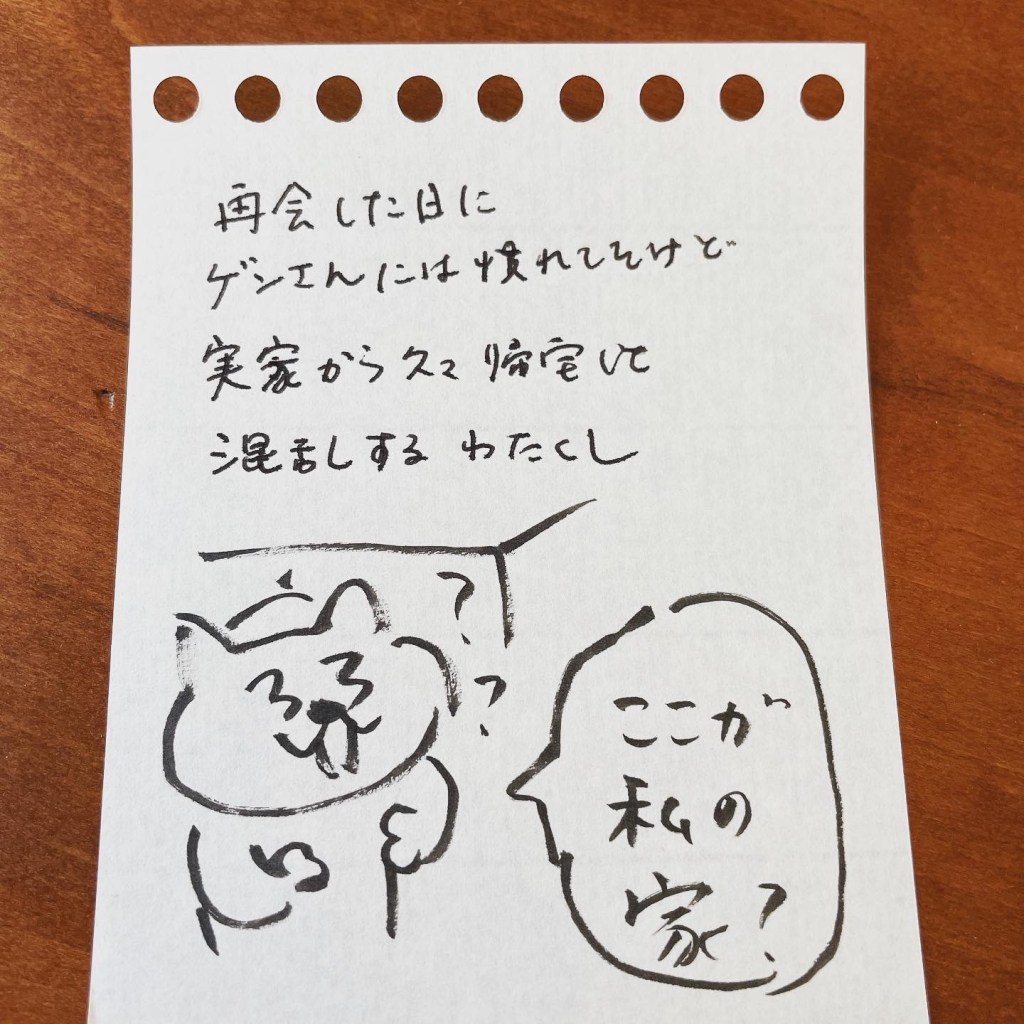 再会した日に
ゲンさんには慣れてたけど
実家から久々帰宅して
混乱する わたくし
?
?
ここが
私の
家?